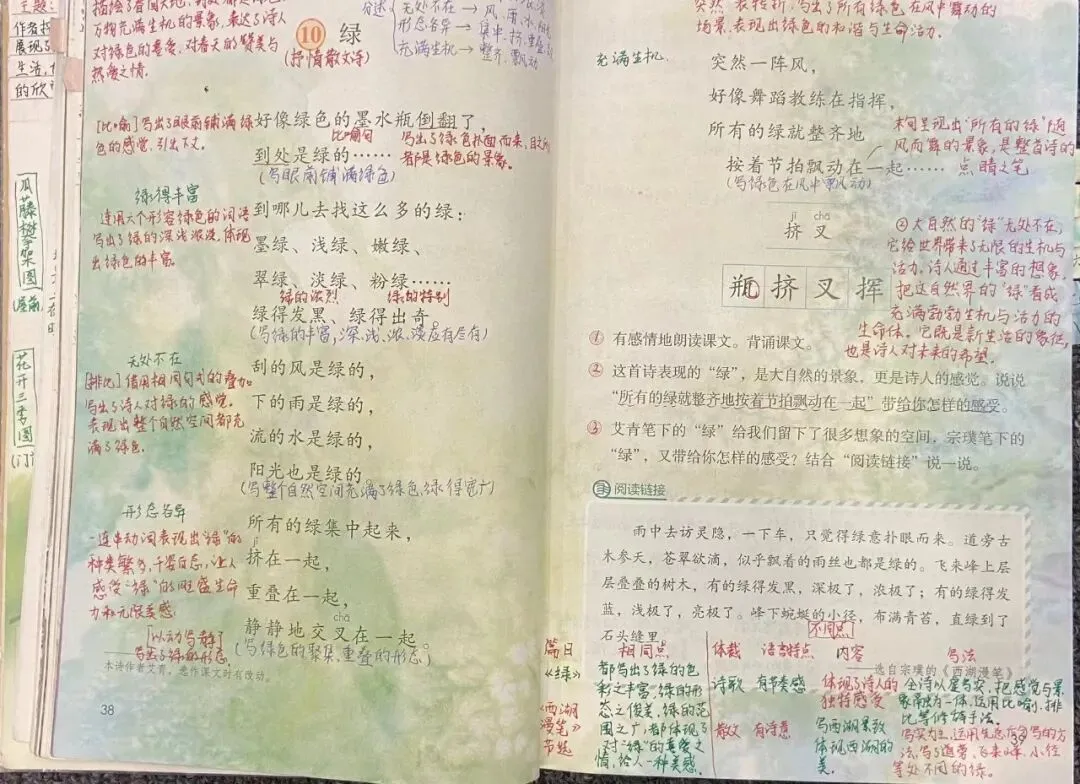 主题:
展现了
生活,
的欣
瓜藤攀架图
(屋前)
花开三季图
描绘了春回大地,
万物充满生机的景象,表达了诗人
对绿色的喜爱、对春天的赞美与
热爱之情。
10 绿
(抒情散文诗)
无处不在→风、雨、水、阳光
形态各异→集中、挤、重叠、
充满生机→整齐、飘动
[比喻]写出了眼前铺满绿
色的感觉,引出下文。
好像绿色的墨水瓶倒翻了,
比喻句
写出了绿色扑面而来,
都是绿色的景象。
到处是绿的……
(写眼前铺满绿色)
绿得丰富
连用六个形容绿色的词语
写出了绿的深浅浓淡,体现
出绿色的丰富。
到哪儿去找这么多的绿:
墨绿、浅绿、嫩绿、
翠绿、淡绿、粉绿……
绿的浓烈 绿的特别
绿得发黑、绿得出奇;
(写绿的丰富,深、浅、浓、淡应有尽有)
无处不在
[排比]借用相同句式的叠加
写出了诗人对绿的感觉,
表现出整个自然空间都充
满了绿色。
刮的风是绿的,
下的雨是绿的,
流的水是绿的,
阳光也是绿的
(写整个自然空间充满了绿色,绿得宽广)
形态各异
一连串动词表现出“绿”的
种类繁多,千姿百态,让人
感受“绿”的旺盛生命
力和无限美感
所有的绿集中起来,
jǐ
挤在一起,
重叠在一起,
chā
静静地交叉在一起。
(写绿色的聚集、重叠的形态)
[以动写静]
写出了绿的形态,
本诗作者艾青,选作课文时有改动。
38
写出了所有绿色在风中舞动的
场景,表现出绿色的和谐与生命活力。
充满生机
突然一阵风,
好像舞蹈教练在指挥,
所有的绿就整齐地
按着节拍飘动在一起……
(写绿色在风中飘动)
末句呈现出“所有的绿”随
风而舞的景象,是整首诗的
点睛之笔
jǐ chā
挤 叉
瓶 挤 叉 挥
②大自然的“绿”无处不在,
它给世界带来了无限的生机与
活力。诗人通过丰富的想象,
把这自然界的“绿”看成
充满勃勃生机与活力的
生命体。它既是新生活的象征,
也是诗人对未来的希望。
① 有感情地朗读课文。背诵课文。
② 这首诗表现的“绿”,是大自然的景象,更是诗人的感觉。说说
“所有的绿就整齐地按着节拍飘动在一起”带给你怎样的感受。
③ 艾青笔下的“绿”给我们留下了很多想象的空间,宗璞笔下的
“绿”,又带给你怎样的感受?结合“阅读链接”说一说。
阅读链接
雨中去访灵隐,一下车,只觉得绿意扑眼而来。道旁古
木参天,苍翠欲滴,似乎飘着的雨丝也都是绿的。飞来峰上层
层叠叠的树木,有的绿得发黑,深极了,浓极了;有的绿得发
蓝,浅极了,亮极了。峰下蜿蜒的小径,布满青苔,直绿到了
石头缝里。
——选自宗璞的《西湖漫笔》
不同点
篇目 相同点 体裁 语言特点 内容 写法
《绿》
《西湖漫笔》节选
都写出了绿的色
彩之丰富,绿的形
态之优美,绿的范
围之广,都体现了
对“绿”的喜爱之
情,给人一种美感。
诗歌 有节奏感
体现了诗人的
独特感受
全诗以虚写实,把感觉与景
象融为一体,运用比喻、排
比等修辞手法。
散文 有诗意
写西湖景致
体现西湖的
美。
写实为主,运用先总后分写的方
法,写了道旁、飞来峰、小径
等处不同的绿。
39